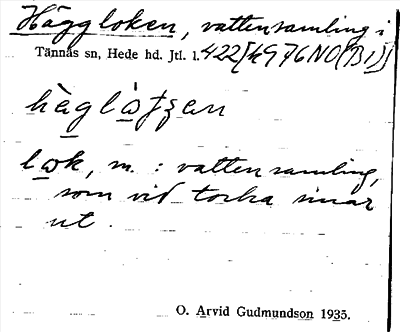 Häggloken, vattensamling i
Tännäs sn, Hede hd. Jtl. 1. 422 [kG 76 NO (B1)]
hàglòtʒan
lok, m. : vattensamling,
som vid torka sinar
ut.
O. Arvid Gudmundson 1935.